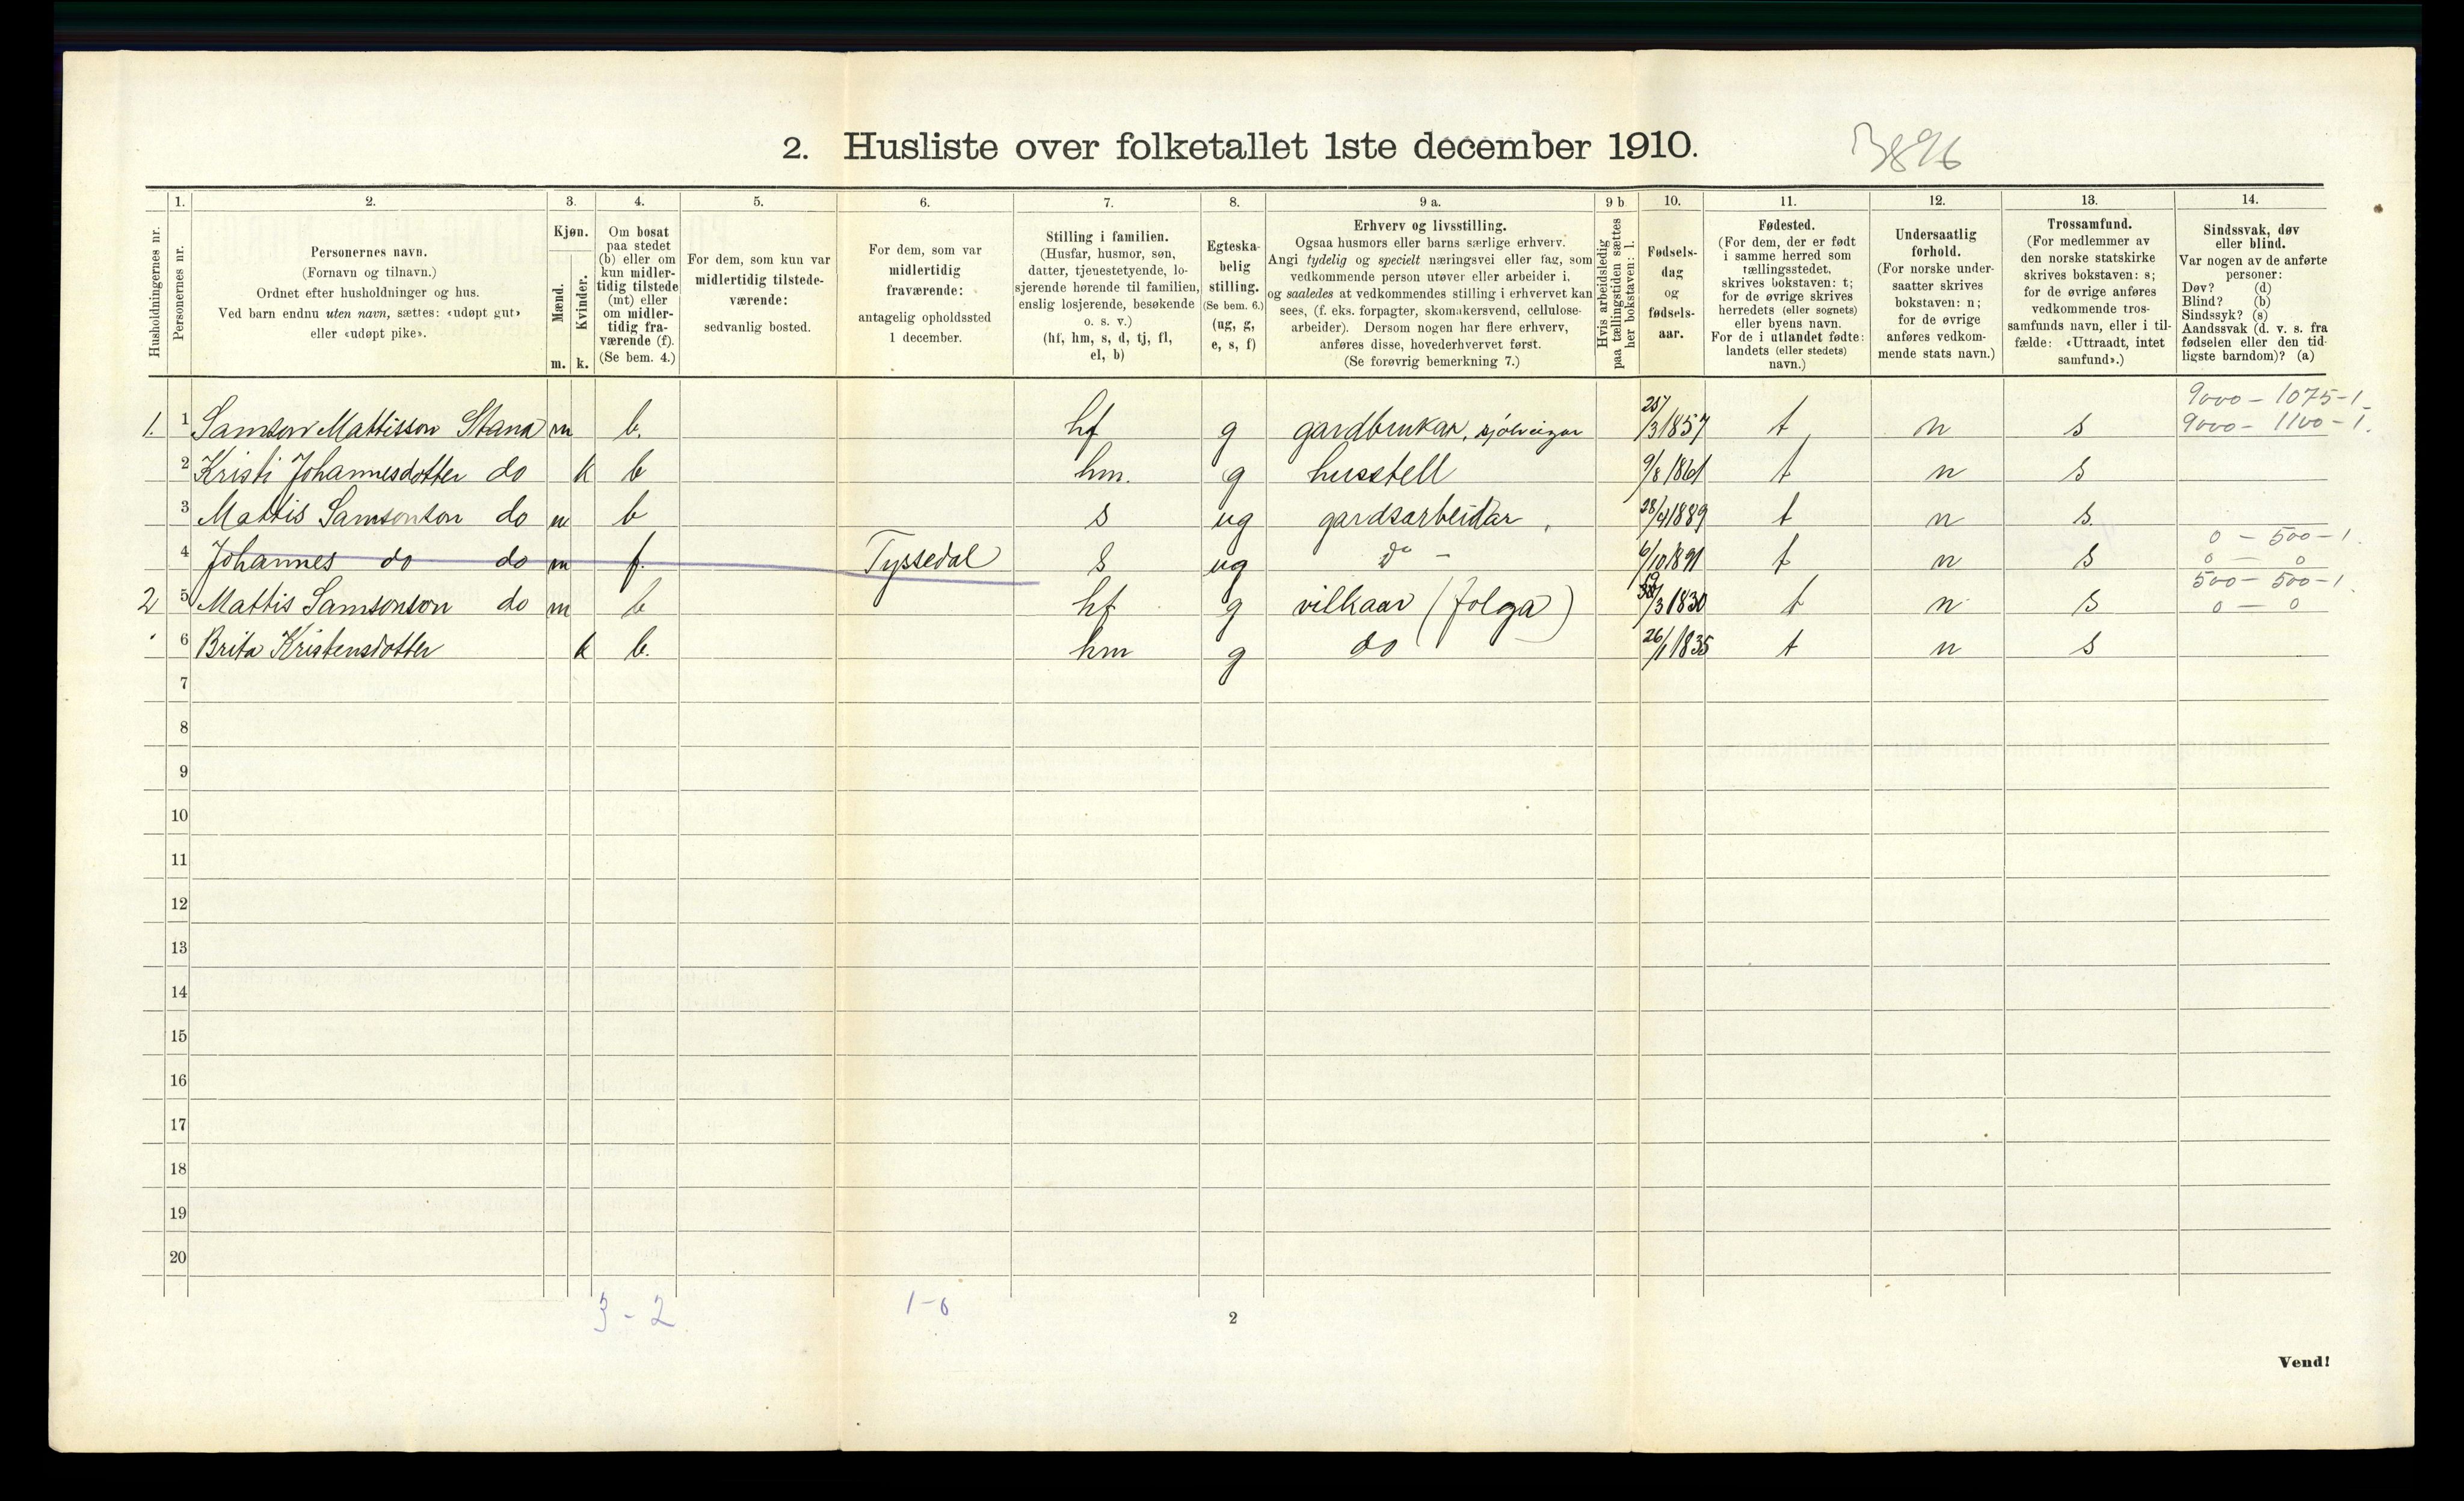 2. Husliste over folketallet 1ste december 1910.
3896
Husholdningernes nr.
1. Personernes nr.
2. Personernes navn.
(Fornavn og tilnavn.)
Ordnet efter husholdninger og hus.
Ved barn endnu uten navn, sættes: «udøpt gut»
eller «udøpt pike».
3. Kjøn.
Mænd. m.
Kvinder. k.
4. Om bosat
paa stedet
(b) eller om
kun midler-
tidig tilstede
(mt) eller
om midler-
tidig fra-
værende (f).
(Se bem. 4.)
5. For dem, som kun var
midlertidig tilstede-
værende:
sedvanlig bosted.
6. For dem, som var
midlertidig
fraværende:
antagelig opholdssted
1 december.
7. Stilling i familien.
(Husfar, husmor, søn,
datter, tjenestetyende, lo-
sjerende hørende til familien,
enslig losjerende, besøkende
o. s. v.)
(hf, hm, s, d, tj, fl,
el, b)
8. Egteska-
belig
stilling.
(Se bem. 6.)
(ug, g,
e, s, f)
9 a. Erhverv og livsstilling.
Ogsaa husmors eller barns særlige erhverv.
Angi tydelig og specielt næringsvei eller fag, som
vedkommende person utøver eller arbeider i,
og saaledes at vedkommendes stilling i erhvervet kan
sees, (f. eks. forpagter, skomakersvend, cellulose-
arbeider). Dersom nogen har flere erhverv,
anføres disse, hovederhvervet først.
(Se forøvrig bemerkning 7.)
9 b. Hvis arbeidsledig
paa tællingstiden sættes
her bokstaven: l.
10. Fødsels-
dag
og
fødsels-
aar.
11. Fødested.
(For dem, der er født
i samme herred som
tællingsstedet,
skrives bokstaven: t;
for de øvrige skrives
herredets (eller sognets)
eller byens navn.
For de i utlandet fødte:
landets (eller stedets)
navn.)
12. Undersaatlig
forhold.
(For norske under-
saatter skrives
bokstaven: n;
for de øvrige
anføres vedkom-
mende stats navn.)
13. Trossamfund.
(For medlemmer av
den norske statskirke
skrives bokstaven: s;
for de øvrige anføres
vedkommende tros-
samfunds navn, eller i til-
fælde: «Uttraadt, intet
samfund».)
14. Sindssvak, døv
eller blind.
Var nogen av de anførte
personer:
Døv? (d)
Blind? (b)
Sindssyk? (s)
Aandssvak (d. v. s. fra
fødselen eller den tid-
ligste barndom)? (a)
9000 - 1075-1
1. 1 Samson Mattisson Stana m b. hf g gardbrukar, sjølveigar 25/3 1857 t n s 9000 - 1100-1.
2 Kristi Johannesdotter do k b hm. g husstell 9/8 1861 t n s
3 Mattis Samsonson do m b s ug gardsarbeidar, 28/4 1889 t n s.
0 - 500-1.
4 Johannes do do m f. Tyssedal s ug do - 6/10 1891 t n s 0 - 0
500 - 500-1
2 5 Mattis Samsonson do m b hf g vilkaar (folga) 19/3 1830 t n s 0 - 0
6 Brita Kristensdotter k b. hm g do 26/1 1835 t n s
7
8
9
10
11
12
13
14
15
16
17
18
19
20
3-2 1-0
2
Vend!